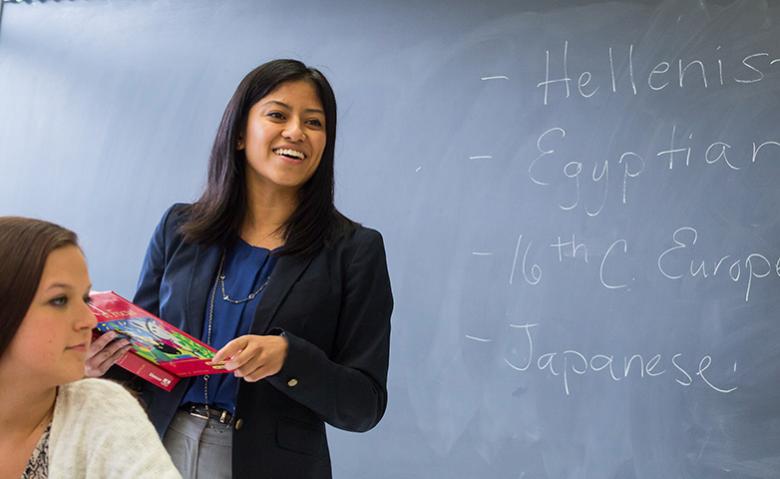 - Hellenist
- Egyptian
- 16th C. Europe
- Japanese